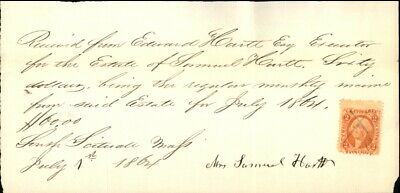 Received from Edward Hartt Esq Executor
for the Estate of Samuel Hartt, Sixty
dollars, being the regular monthly income
from said Estate for July 1864.
$60.00
South Scituate Mass
July 1st 1864
Mrs Samuel Hartt